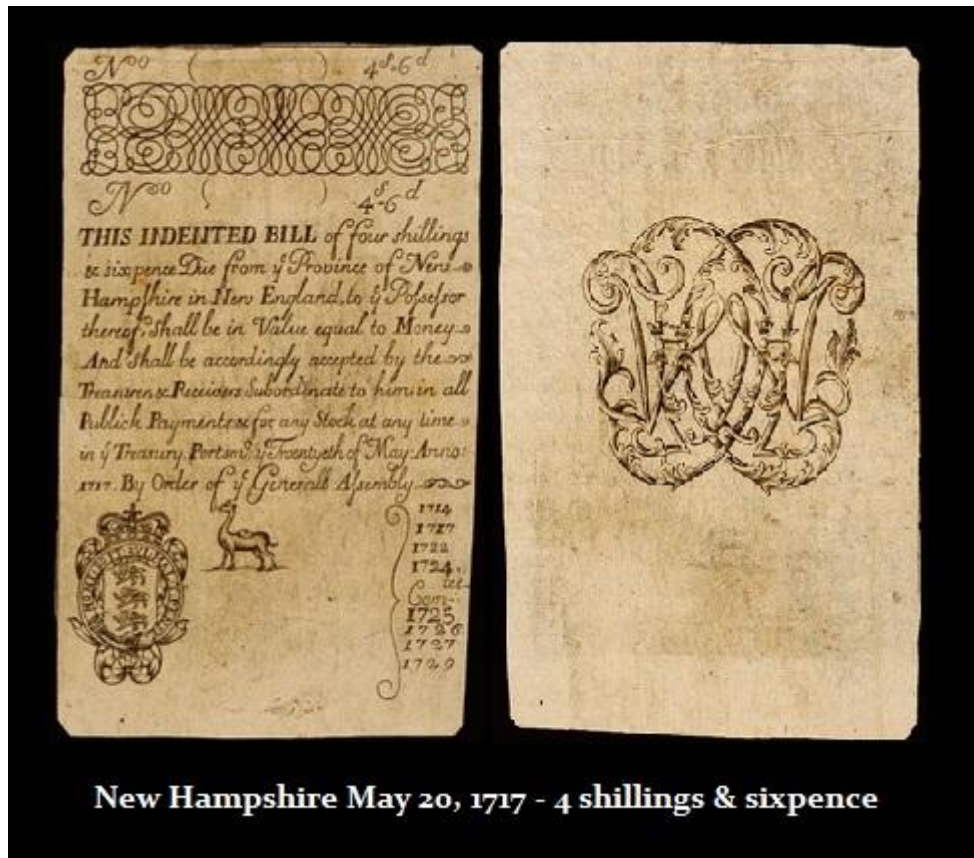 Noo 4s-6d
Noo 4s-6d
THIS INDENTED BILL of four shillings
& six pence Due from ẏ Province of New
Hampshire in New England, to ẏ Possessor
thereof, Shall be in Value equal to Money
And shall be accordingly accepted by the
Treasurer & Receivers Subordinate to him in all
Publick Payments & for any Stock at any time
in ẏ Treasury. Portsmo ẏ Twentyeth of May. Anno:
1717. By Order of ẏ Generall Assembly
1714
1717
1722
1724.
Com:tee
1725
1726
1727
1729
HONI SOIT
New Hampshire May 20, 1717 - 4 shillings & sixpence